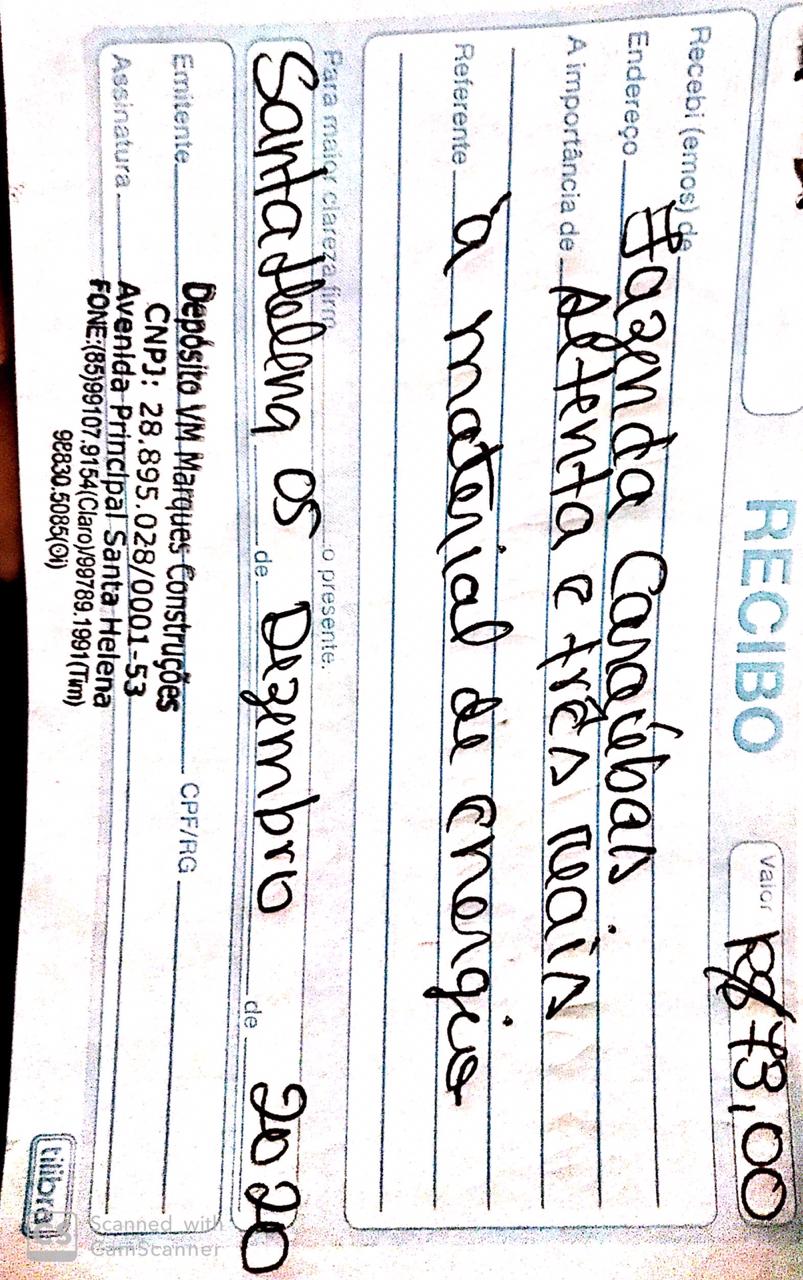 RECIBO
Valor R$ 73,00
Recebi (emos) de
Endereço Fazenda Caraúbas
A importância de setenta e três reais
Referente à material de energia
Para maior clareza firm o presente.
Santa Helena 05 de Dezembro de 2020
Emitente Depósito VM Marques Construções CPF/RG
CNPJ: 28.895.028/0001-53
Assinatura Avenida Principal Santa Helena
FONE:(85)99107.9154(Claro)/99789.1991(Tim)
98830.5085(Oi)
tilibra
Scanned with
CamScanner